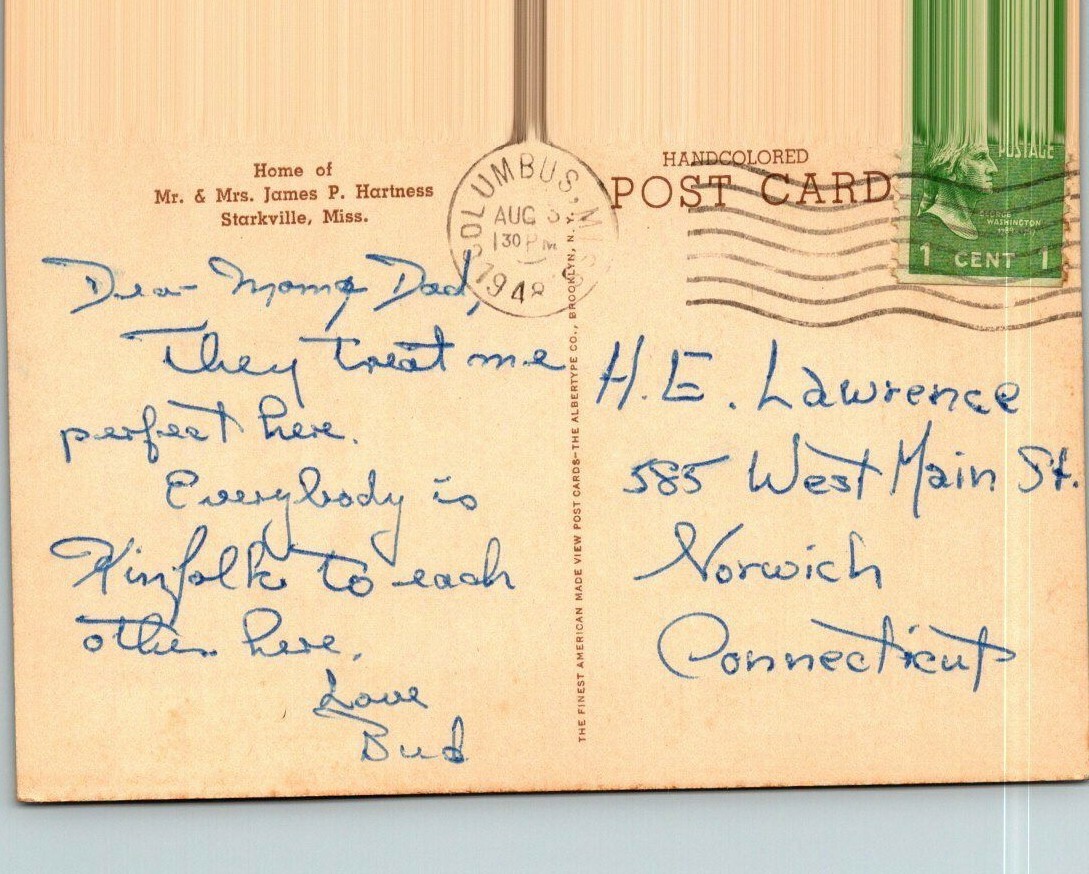 Home of
Mr. & Mrs. James P. Hartness
Starkville, Miss.
COLUMBUS, MISS.
AUG
1 30 PM
1948
HANDCOLORED
POST CARD
POSTAGE
GEORGE
WASHINGTON
1 CENT 1
Dear Mom & Dad,
They treat me
perfect here.
Everybody is
Kinfolk to each
other here.
Love
Bud
THE FINEST AMERICAN MADE VIEW POST CARDS—THE ALBERTYPE CO., BROOKLYN, N. Y.
H. E. Lawrence
585 West Main St.
Norwich
Connecticut